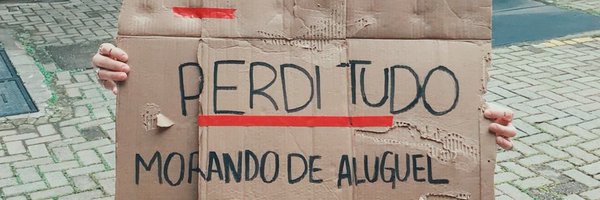 PERDI TUDO
MORANDO DE ALUGUEL